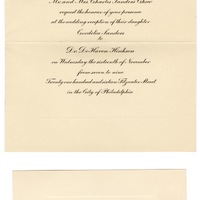 Mr. and Mrs. Charles Sanders
request the honour of your presence
at the wedding reception of their daughter
Cordelia Sanders
to
Dr. De Haven Hinkson
on Wednesday the sixteenth of November
from seven to nine
Twenty one hundred and sixteen Street
in the City of Philadelphia